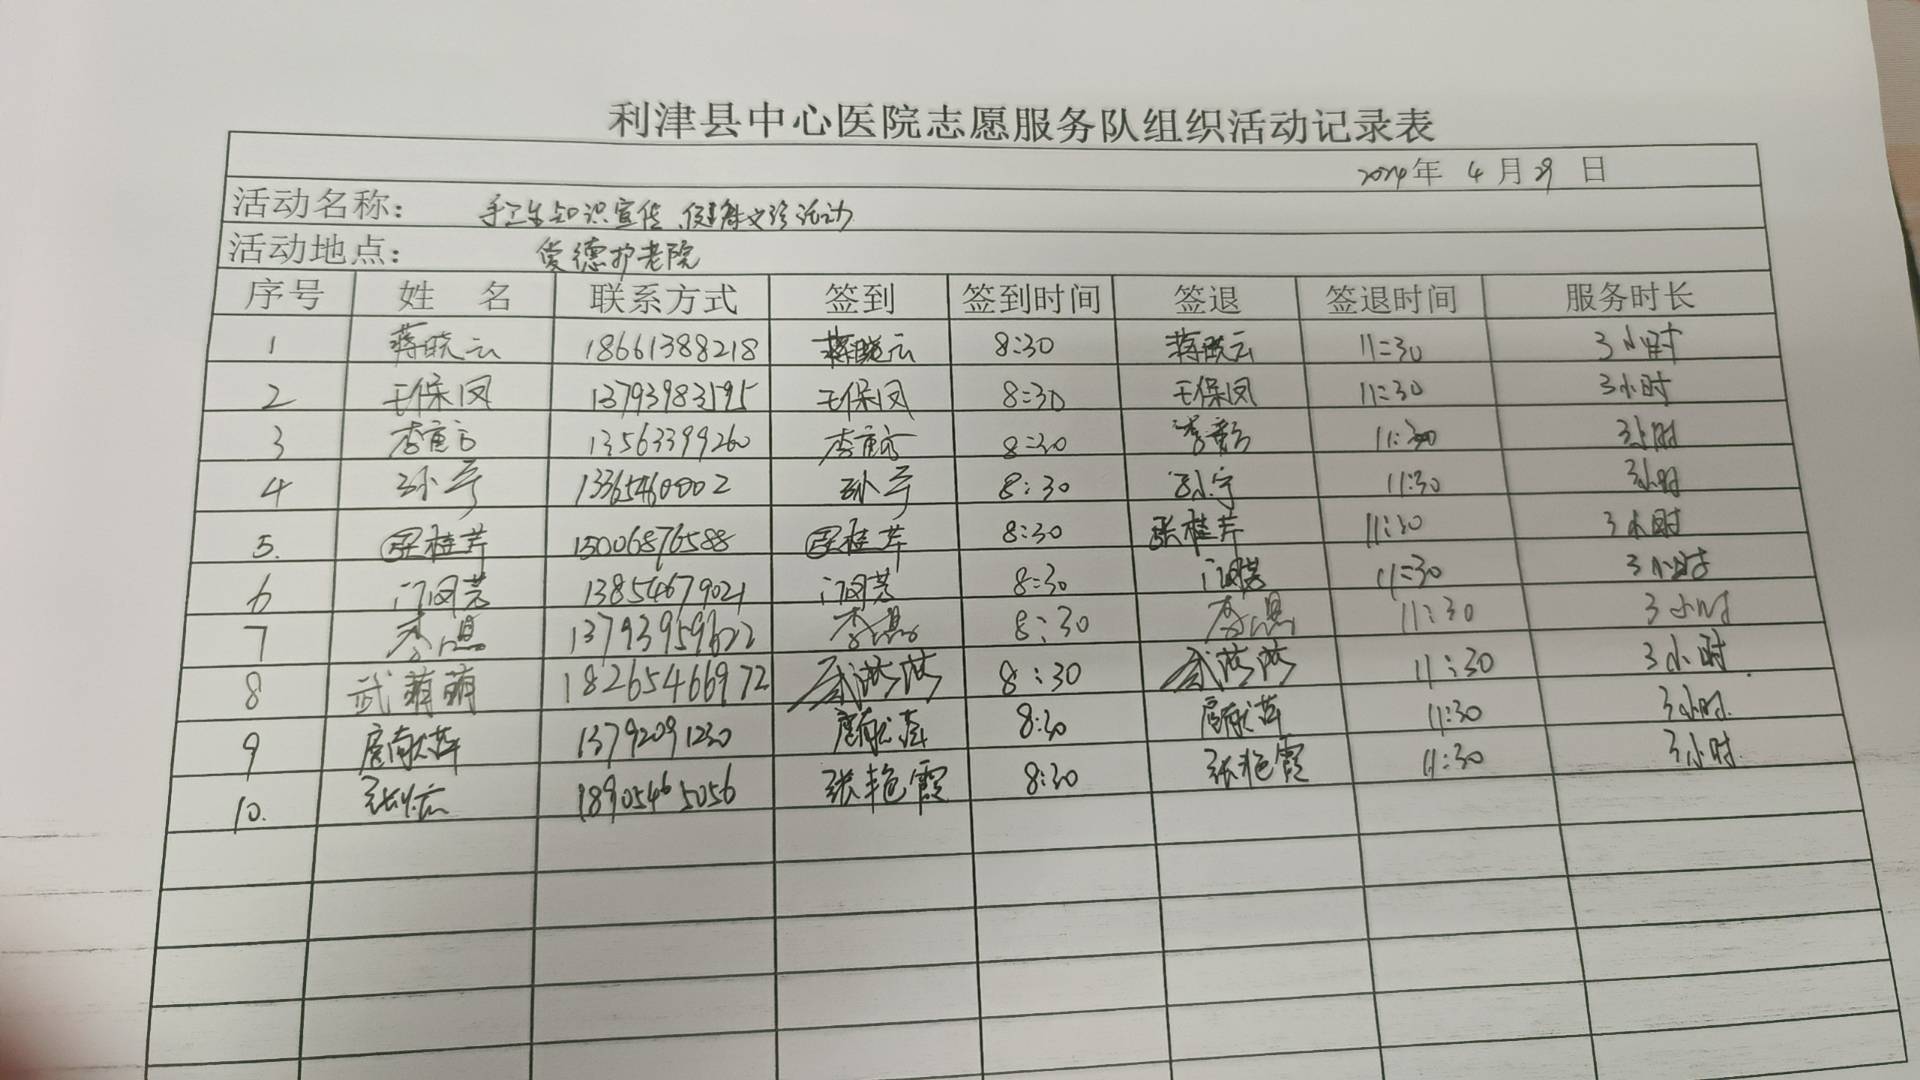 利津县中心医院志愿服务队组织活动记录表
2024年 4 月 29 日
活动名称: 手卫生知识宣传、健康义诊活动
活动地点: 爱德护老院
序号 姓 名 联系方式 签到 签到时间 签退 签退时间 服务时长
1 蒋晓云 18661388218 蒋晓云 8:30 蒋晓云 11:30 3小时
2 王保凤 13793983595 王保凤 8:30 王保凤 11:30 3小时
3 13563399260 8:30 11:30 3小时
4 13365460002 8:30 孙宁 11:30 3小时
5. 张桂芹 15006876588 张桂芹 8:30 张桂芹 11:30 3小时
6 13854679021 8:30 11:30 3小时
7 13793959622 8:30 11:30 3小时
8 武萌萌 18265466972 武萌萌 8:30 武萌萌 11:30 3小时
9 13792091230 8:30 11:30 3小时
10. 18905465056 张艳霞 8:30 张艳霞 11:30 3小时